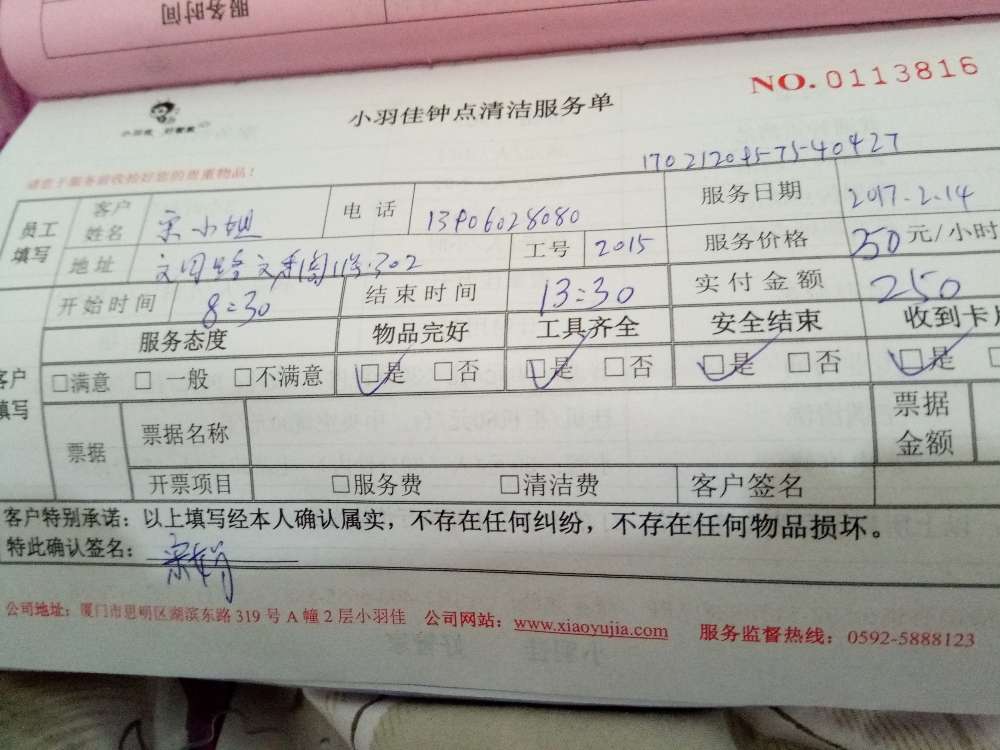 服务时间
NO. 0113816
小羽佳 好管家
小羽佳钟点清洁服务单
170212045-75-40427
请您于服务前收拾好您的贵重物品！
员工填写 客户姓名 宋小姐 电话 13906028080 服务日期 2017.2.14
地址 302 工号 2015 服务价格 50元/小时
开始时间 8:30 结束时间 13:30 实付金额 250
服务态度 物品完好 工具齐全 安全结束 收到卡片
客户填写 □满意 □一般 □不满意 ☑是 □否 ☑是 □否 ☑是 □否 ☑是
票据 票据名称 票据金额
开票项目 □服务费 □清洁费 客户签名
客户特别承诺：以上填写经本人确认属实，不存在任何纠纷，不存在任何物品损坏。
特此确认签名：
公司地址：厦门市思明区湖滨东路 319 号 A 幢 2 层小羽佳 公司网站：www.xiaoyujia.com 服务监督热线：0592-5888123